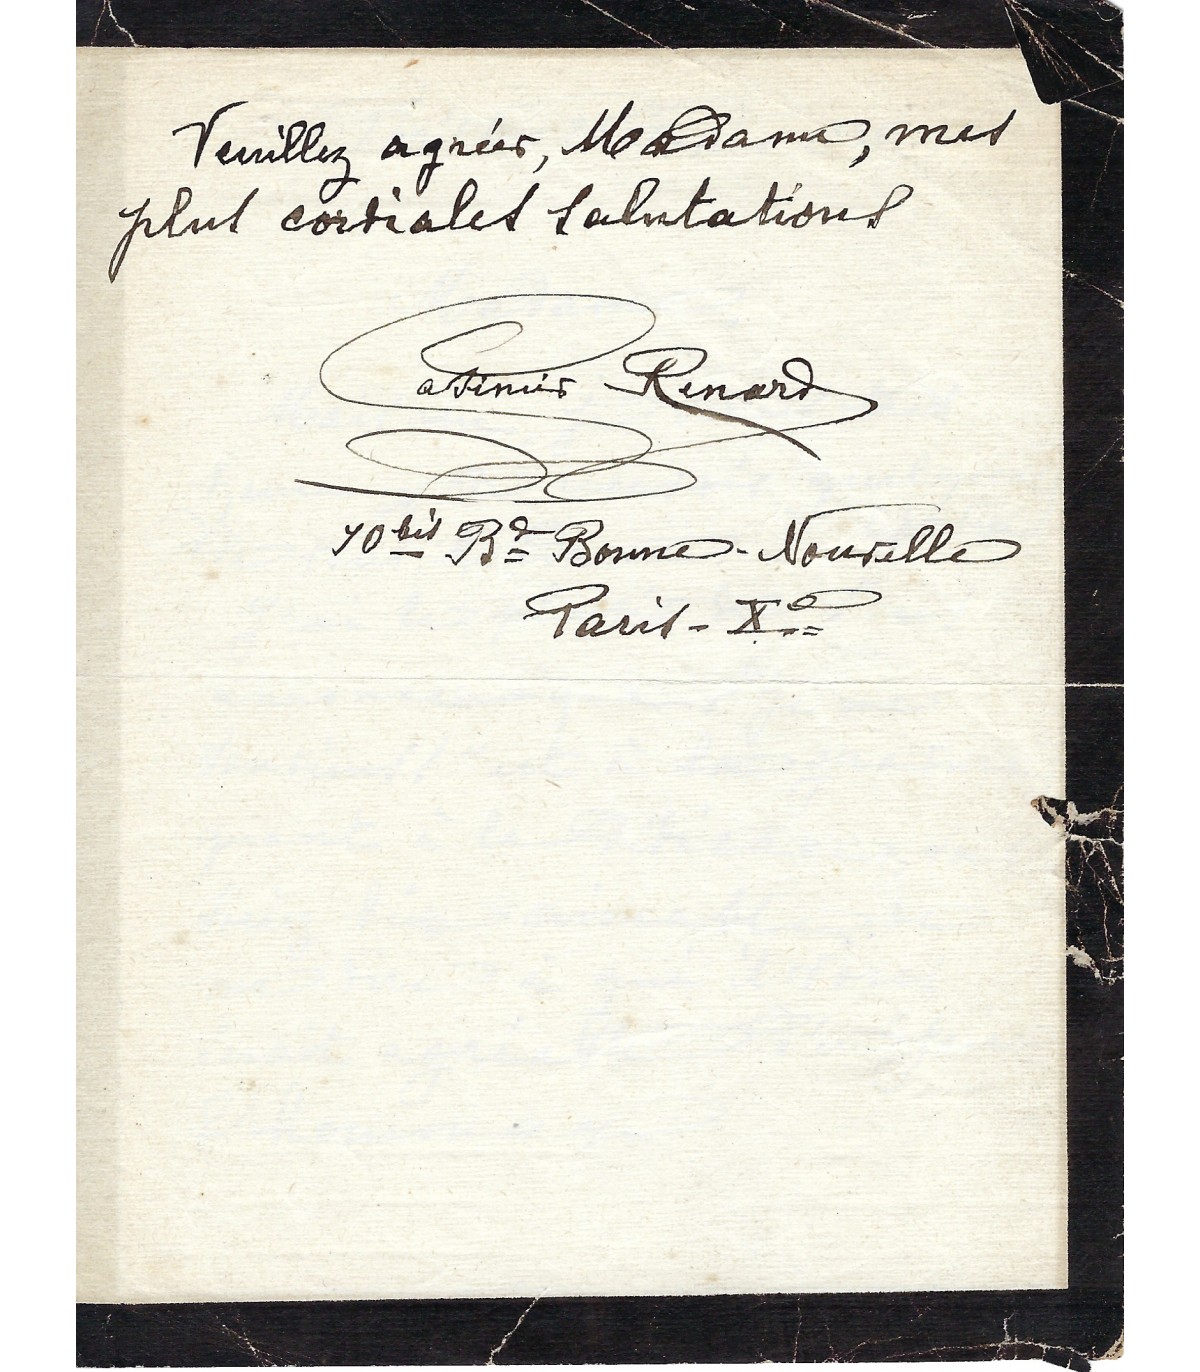 Veuillez agréer, Madame, mes
plus cordiales salutations
Casimir Renard
10 bis Bd Bonne-Nouvelle
Paris - Xe